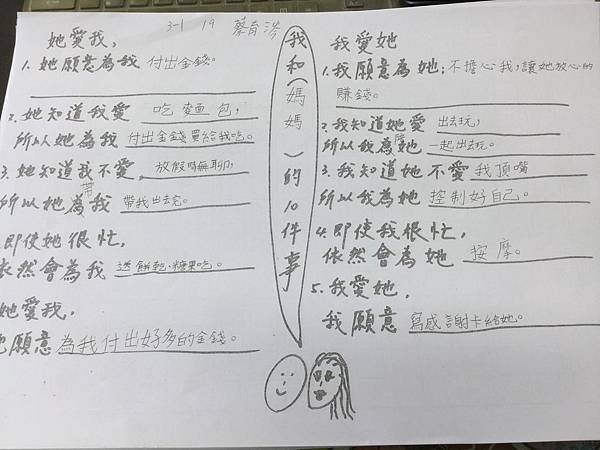 3-1 19 蔡育涔
她愛我,
1. 她願意為我 付出金錢。
2. 她知道我愛 吃麵包,
所以她為我 付出金錢買給我吃。
3. 她知道我不愛 放假時無聊,
所以她為我 帶我出去玩。
帶
即使她很忙,
依然會為我 送餅乾、糖果吃。
她愛我,
她願意 為我付出好多的金錢。
我和(媽媽)的10件事
我愛她
1. 我願意為她: 不擔心我,讓她放心的
賺錢。
2. 我知道她愛 出去玩,
所以我為她 一起出去玩。
陪
3. 我知道她不愛 我頂嘴
所以我為她 控制好自己。
4. 即使我很忙,
依然會為她 按摩。
5. 我愛她,
我願意 寫感謝卡給她。